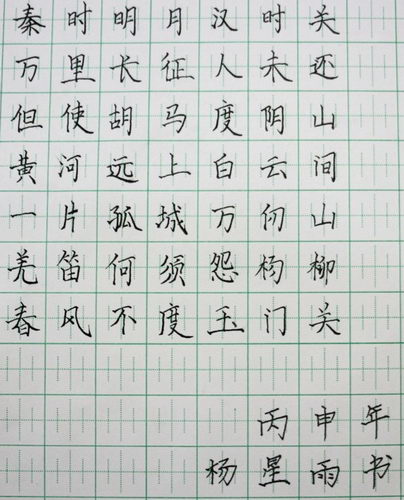 秦时明月汉时关
万里长征人未还
但使胡马度阴山
黄河远上白云间
一片孤城万仞山
羌笛何须怨杨柳
春风不度玉门关
丙申年
杨星雨书